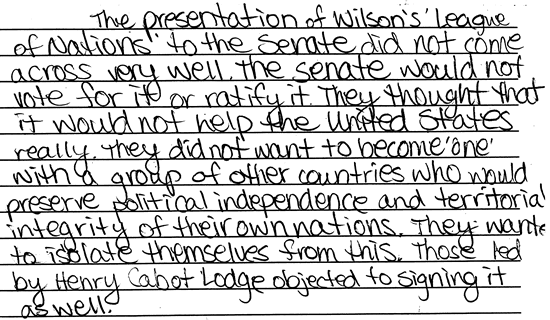 The presentation of Wilson's 'League
of Nations' to the Senate did not come
across very well. The senate would not
vote for it or ratify it. They thought that
it would not help the United States
really. They did not want to become 'one'
with a group of other countries who would
preserve political independence and territorial
integrity of their own nations. They wante
to isolate themselves from this. Those led
by Henry Cabot Lodge objected to signing it
as well.